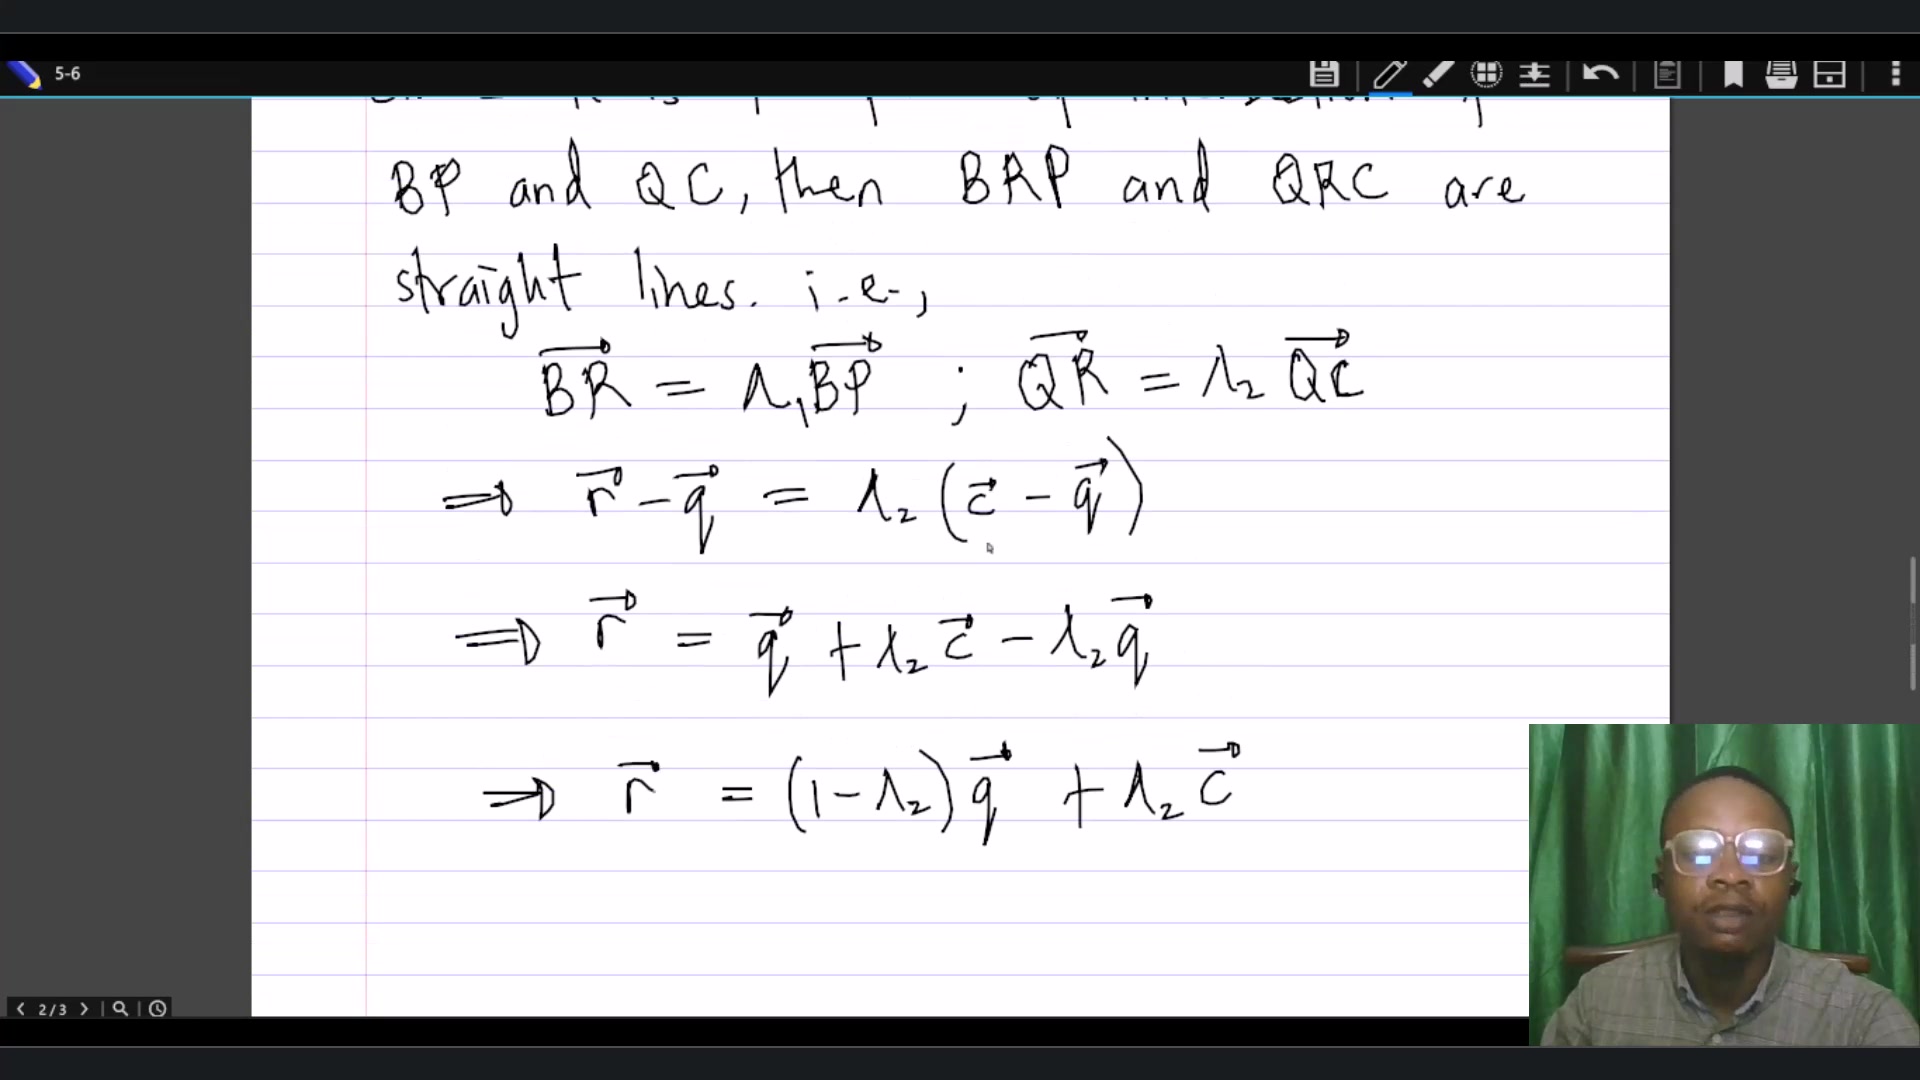 5-6
BP and QC, then BRP and QRC are
straight lines. i.e.,
\overrightarrow{BR} = λ₁\overrightarrow{BP} ; \overrightarrow{QR} = λ₂ \overrightarrow{QC}
⇒ \vec{r} - \vec{q} = λ₂ (\vec{c} - \vec{q})
⇒ \vec{r} = \vec{q} + λ₂ \vec{c} - λ₂ \vec{q}
⇒ \vec{r} = (1 - λ₂) \vec{q} + λ₂ \vec{c}
2/3